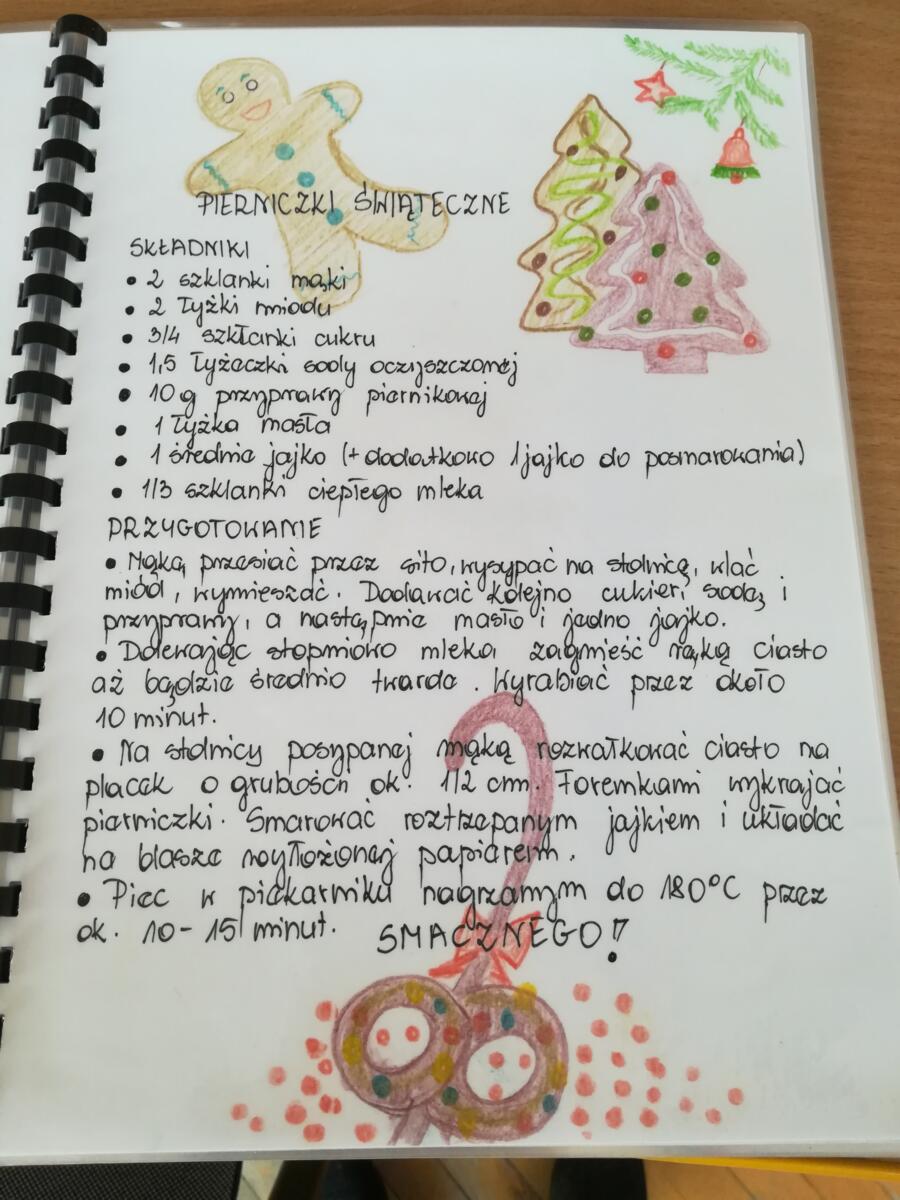 PIERNICZKI ŚWIĄTECZNE
SKŁADNIKI
• 2 szklanki mąki
• 2 łyżki miodu
• 3/4 szklanki cukru
• 1,5 łyżeczki sody oczyszczonej
• 10 g przyprawy piernikowej
• 1 łyżka masła
• 1 średnie jajko (+ dodatkowo 1 jajko do posmarowania)
• 1/3 szklanki ciepłego mleka
PRZYGOTOWANIE
• Mąkę przesiać przez sito, wysypać na stolnicę, wlać
miód, wymieszać. Dodawać kolejno cukier, sodę i
przyprawy, a następnie masło i jedno jajko.
• Dolewając stopniowo mleka zagnieść ręką ciasto
aż będzie średnio twarde. Wyrabiać przez około
10 minut.
• Na stolnicy posypanej mąką rozwałkować ciasto na
placek o grubości ok. 1/2 cm. Foremkami wykrajać
pierniczki. Smarować roztrzepanym jajkiem i układać
na blasze wyłożonej papierem.
• Piec w piekarniku nagrzanym do 180°C przez
ok. 10-15 minut.
SMACZNEGO!